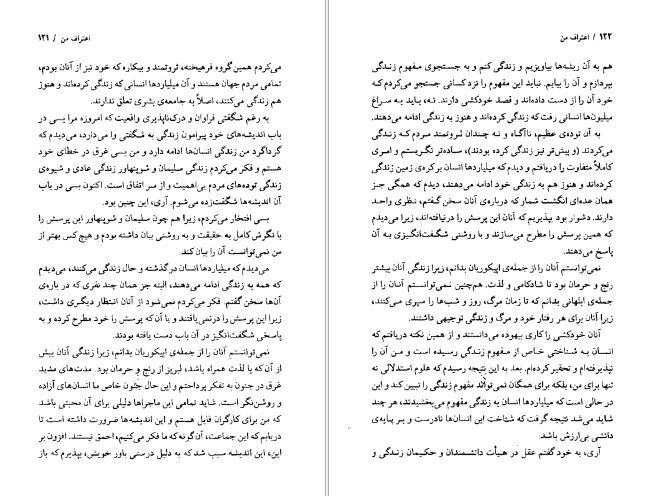 اعتراف من / ۱۲۱
می‌کردم همین‌گروه فرهیخته، ثروتمند و بیکاره که خود نیز از آنان بودم،
تمامی مردم جهان هستند و آن میلیاردها انسانی که زندگی کرده‌اند و هنوز
هم زندگی می‌کنند، اصلاً به جامعه‌ی بشری تعلق ندارند.
به رغم شگفتی فراوان و درک‌ناپذیری واقعیت که امروزه مرا بسی در
باب اندیشه‌های خود پیرامون زندگی به شگفتی وا می‌دارد، می‌دیدم که
گرداگرد من زندگی انسان‌ها ادامه دارد و من بسی غرق در خطای خود
هستم و فکر می‌کردم زندگی سلیمان و شوپنهاور زندگی عادی و شیوه‌ی
زندگی توده‌های مردم بی‌اهمیت و از سر اتفاق است. اکنون بسی در باب
آن اندیشه‌ها شگفت‌زده می‌شوم. آری، این چنین بود.
بسی افتخار می‌کردم، زیرا هم چون سلیمان و شوپنهاور این پرسش را
با نگرش کامل به حقیقت و به روشنی بیان داشته بودم و هیچ کس بهتر از
من نمی‌توانست آن را بیان کند.
می‌دیدم که میلیاردها انسان در گذشته و حال زندگی می‌کنند، می‌دیدم
که همه به زندگی ادامه می‌دهند، البته جز همان چند نفری که در باره‌ی
آن‌ها سخن گفتم. فکر می‌کردم نمی‌شود از آنان انتظار دیگری داشت،
زیرا این پرسش را درنمی‌یافتند و یا آن که پرسش را خود مطرح کرده و به
پاسخی شگفت‌انگیز در آن باب دست یافته بودند.
نمی‌توانستم آنان را از جمله‌ی اپیکوریان بدانم، زیرا زندگی آنان بیش
از آن که با لذت همراه باشد، لبریز از رنج و حرمان بود. مدت‌های مدید
غرق در جنون به تفکر پرداختم و این حال جنون خاص ما انسان‌های آزاده
و روشن‌نگر است. شاید تمامی این ماجراها دلیلی برای آن محبتی باشد
که من برای کارگران قایل هستم و این اندیشه‌ها ضرورت داشته است تا
دریابم که این جماعت، آن‌گونه که ما فکر می‌کنیم، احمق نیستند. افزون بر
این، این اندیشه سبب شد که به دلیل درستی باور خویش، بپذیرم که باز
۱۲۲ / اعتراف من
هم به آن ریشه‌ها بیاویزیم و زندگی کنم و به جستجوی مفهوم زندگی
بپردازم و آن را بیابم. نباید این مفهوم را نزد کسانی جستجو می‌کردم که
خود آن را از دست داده‌اند و قصد خودکشی دارند. نه، باید به سراغ
میلیون‌ها انسانی رفت که زندگی کرده‌اند و هنوز به زندگی ادامه می‌دهند.
به آن توده‌ی عظیم، ناآگاه و نه چندان ثروتمند مردم که زندگی
می‌کردند (و پیش‌تر نیز زندگی کرده بودند)، ساده‌تر نگریستم و امری
کاملاً متفاوت را دریافتم و دیدم که میلیاردها انسان بر کره‌ی زمین زندگی
کرده‌اند و هنوز هم به زندگی خود ادامه می‌دهند، دیدم که همگی جز
همان عده‌ای انگشت شمار که درباره‌ی آنان سخن گفتم، نظری واحد
دارند. دشوار بود بپذیریم که آنان این پرسش را درنیافته‌اند، زیرا می‌دیدم
که همین پرسش را مطرح می‌سازند و با روشنی شگفت‌انگیزی به آن
پاسخ می‌دهند.
نمی‌توانستم آنان را از جمله‌ی اپیکوریان بدانم، زیرا زندگی آنان بیشتر
رنج و حرمان بود تا شادکامی و لذت. هم‌چنین نمی‌توانستم آنان را از
جمله‌ی ابلهانی بدانم که تا زمان مرگ، روز و شب‌ها را سپری می‌کنند،
زیرا آنان برای هر رفتار خود و مرگ و زندگی توجیهی داشتند.
آنان خودکشی را کاری بیهوده می‌دانستند و از همین نکته دریافتم که
انسان به شناختی خاص از مفهوم زندگی رسیده است و من آن را
نپذیرفته‌ام و تحقیر کرده‌ام. بعد به این نتیجه رسیدم که علوم استدلالی نه
تنها برای من، بلکه برای همگان نمی‌تواند مفهوم زندگی را تبیین کند و این
در حالی است که میلیاردها انسان به زندگی مفهوم می‌بخشیدند، هر چند
شاید می‌شد نتیجه گرفت که شناخت این انسان‌ها نادرست و بر پایه‌ی
دانشی بی‌ارزش باشد.
آری، به خود گفتم عقل در هیأت دانشمندان و حکیمان زندگی و